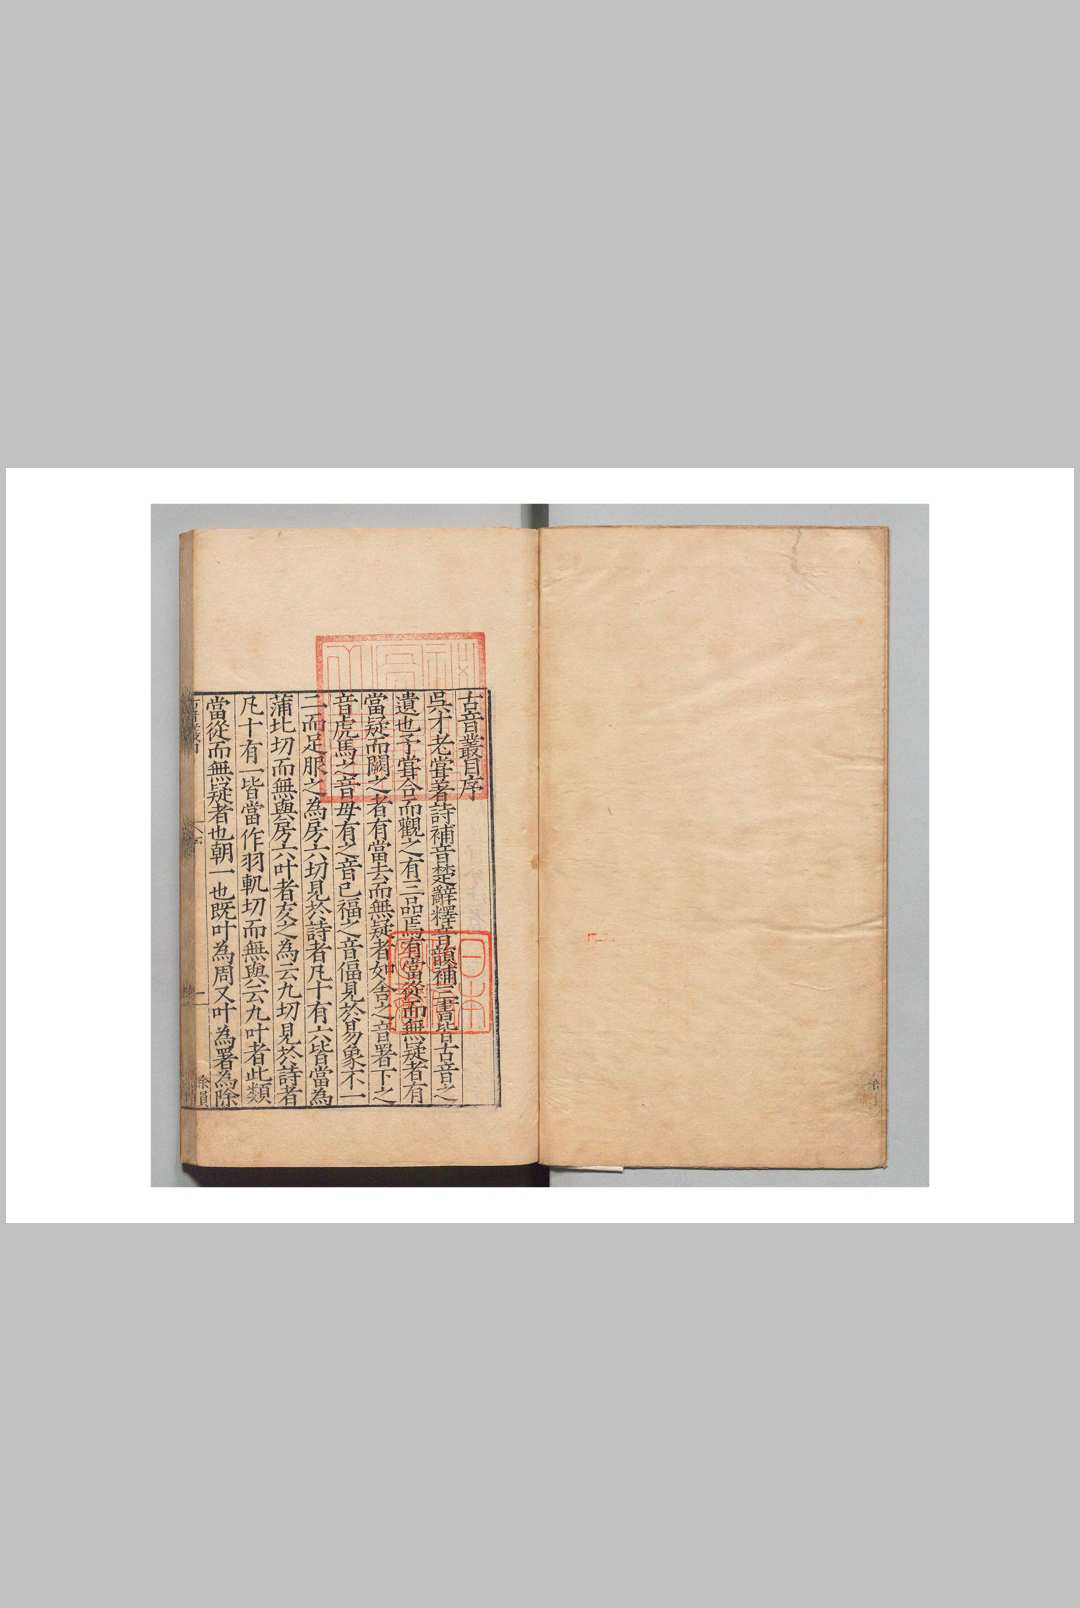 古音叢目序
吳才老嘗著詩補音楚辭釋音韻補三書皆古音之
遺也予嘗合而觀之有三品焉有當從而無疑者有
當疑而闕之者有當去而無疑者如舍之音署下之
音虎馬之音毋有之音已福之音偪見於易象不一
二而足服之為房六切見於詩者凡十有六皆當為
蒲北切而無與房六叶者友之為云九切見於詩者
凡十有一皆當作羽軌切而無與云九叶者此類
當從而無疑者也朝一也既叶為周又叶為署為除